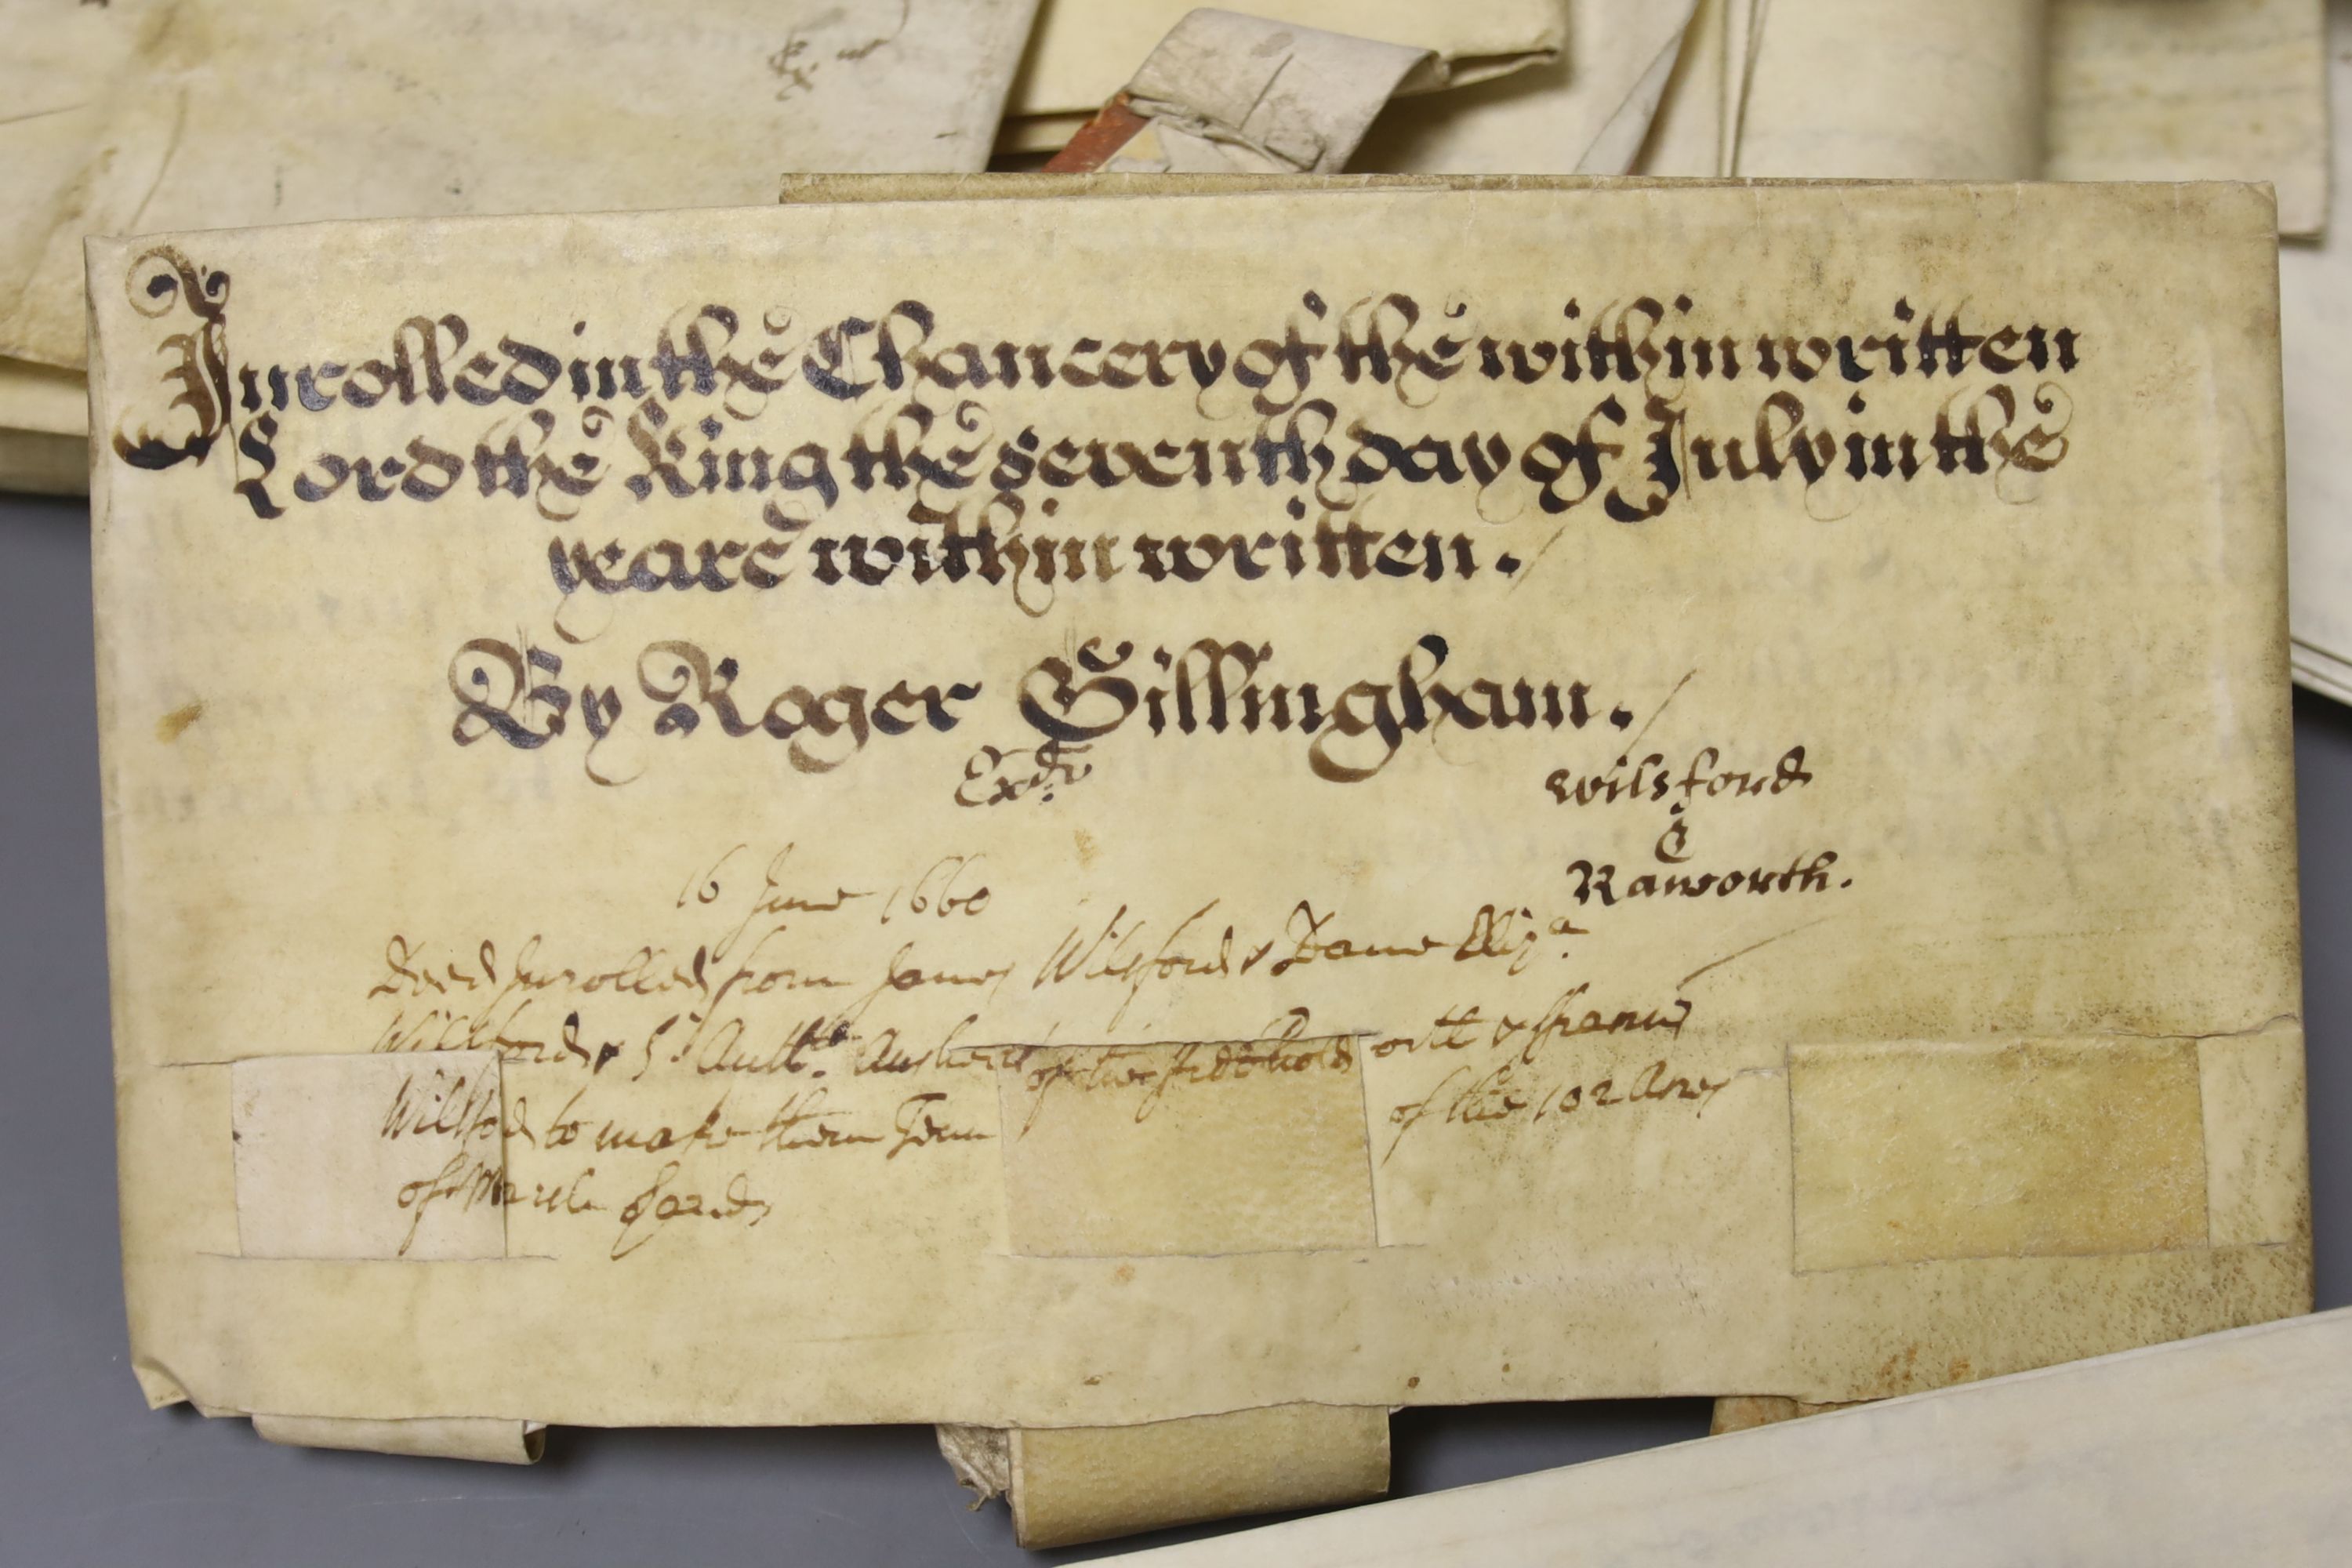 Inrolled in the Chancery of the within written
Lord the King the seventh day of July in the
yeare within written ./
By Roger Gillingham ./
Exdr
Wilsford
&
Raworth.
16 June 1660
Deed Inrolled from James Wilsford & Dame Eliza.
Willsford & Sr Anth.
Wilsford to make them Tenn of the freehold
of Marsh Lands of the 102 Acres